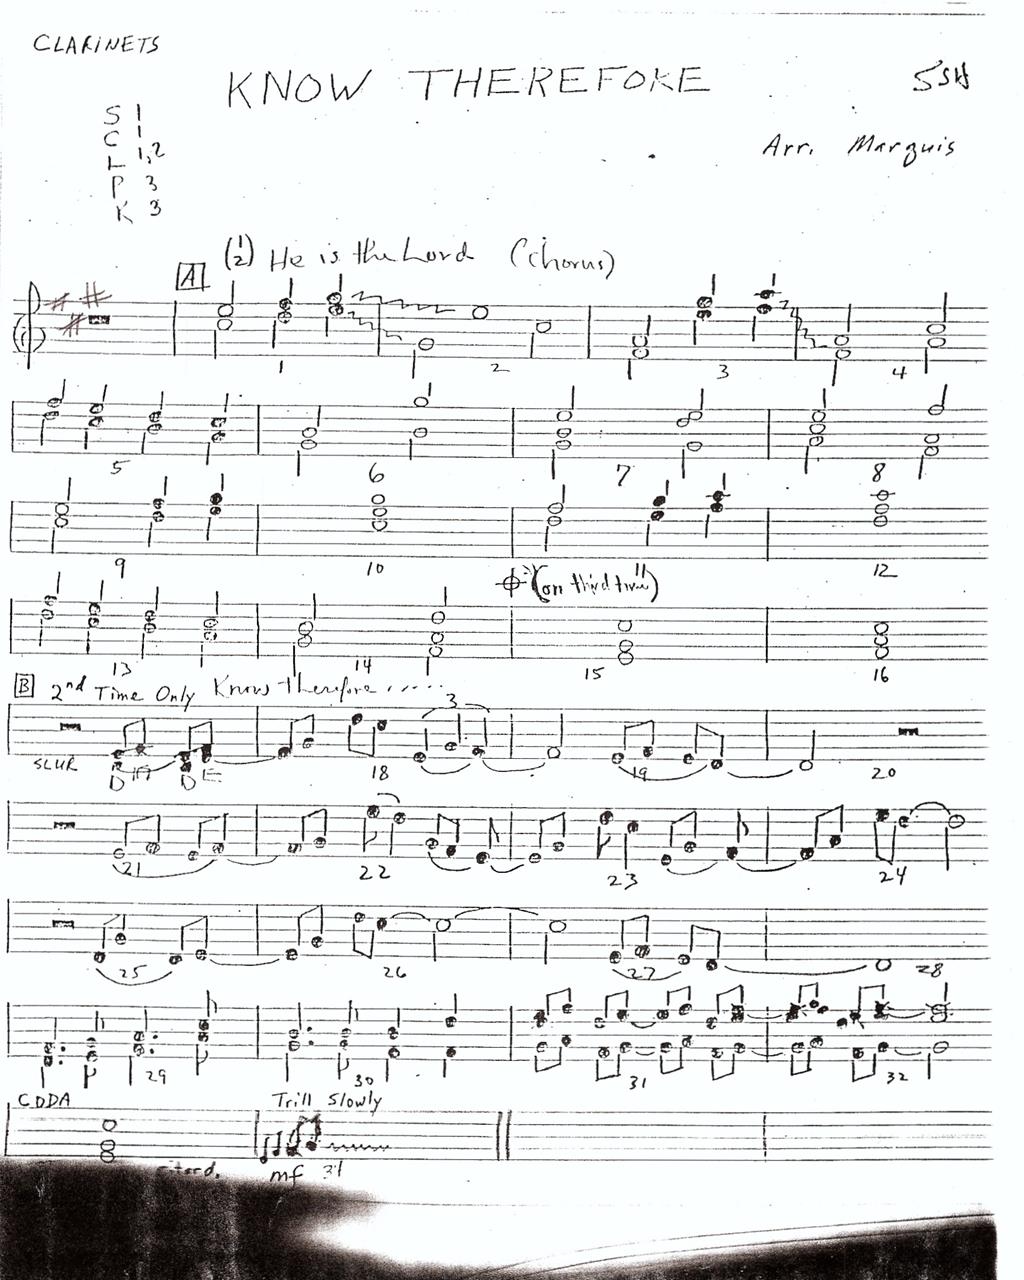 CLARINETS
KNOW THEREFORE
S 1
C 1
L 1,2
P 3
K 3
Arr. Marquis
A (1 2) He is the Lord (Chorus)
1 2 3 4
5 6 7 8
9 10 12
(on third time)
13 14 15 16
B 2nd Time Only Know therefore .....
3
SLUR D D E 18 19 20
21 22 23 24
25 26 27 28
29 30 31 32
CODA Trill Slowly
mf